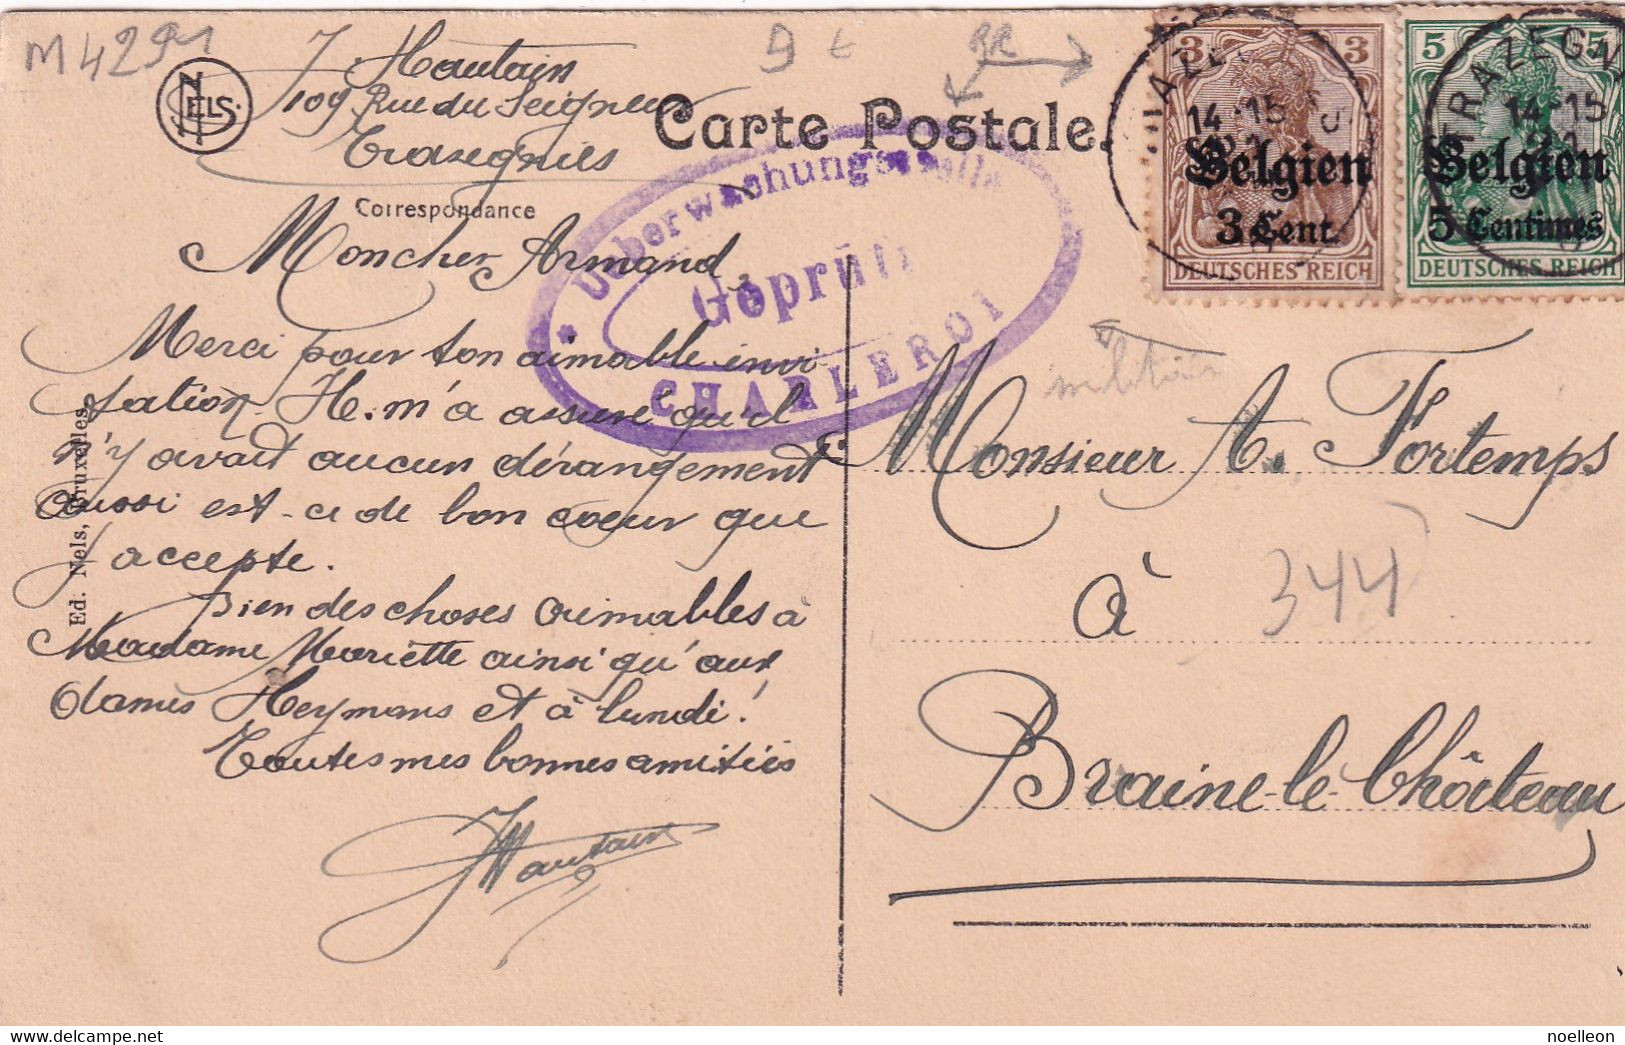 M 429
J Hautain
109 Rue du Seigneur
Trasegnies
NELS
Carte Postale.
Correspondance
Ueberwachungsstelle
Geprüft
CHARLEROI
3 3
Belgien
3 Cent.
DEUTSCHES REICH
5 5
Belgien
5 Centimes
DEUTSCHES REICH
14-15
14-15
RAZEGN
Mon cher Armand,
Merci pour ton aimable invi
tation. H. m'a assuré qu'il
n'y avait aucun dérangement
aussi est-ce de bon coeur que
j'accepte.
Bien des choses aimables à
Madame Mariette ainsi qu'aux
dames Heymans et à lundi!
Toutes mes bonnes amitiés
JHautain
Ed. Nels, Bruxelles.
militaire
Monsieur A. Fortemps
à
344
Braine-le-Château
noelleon